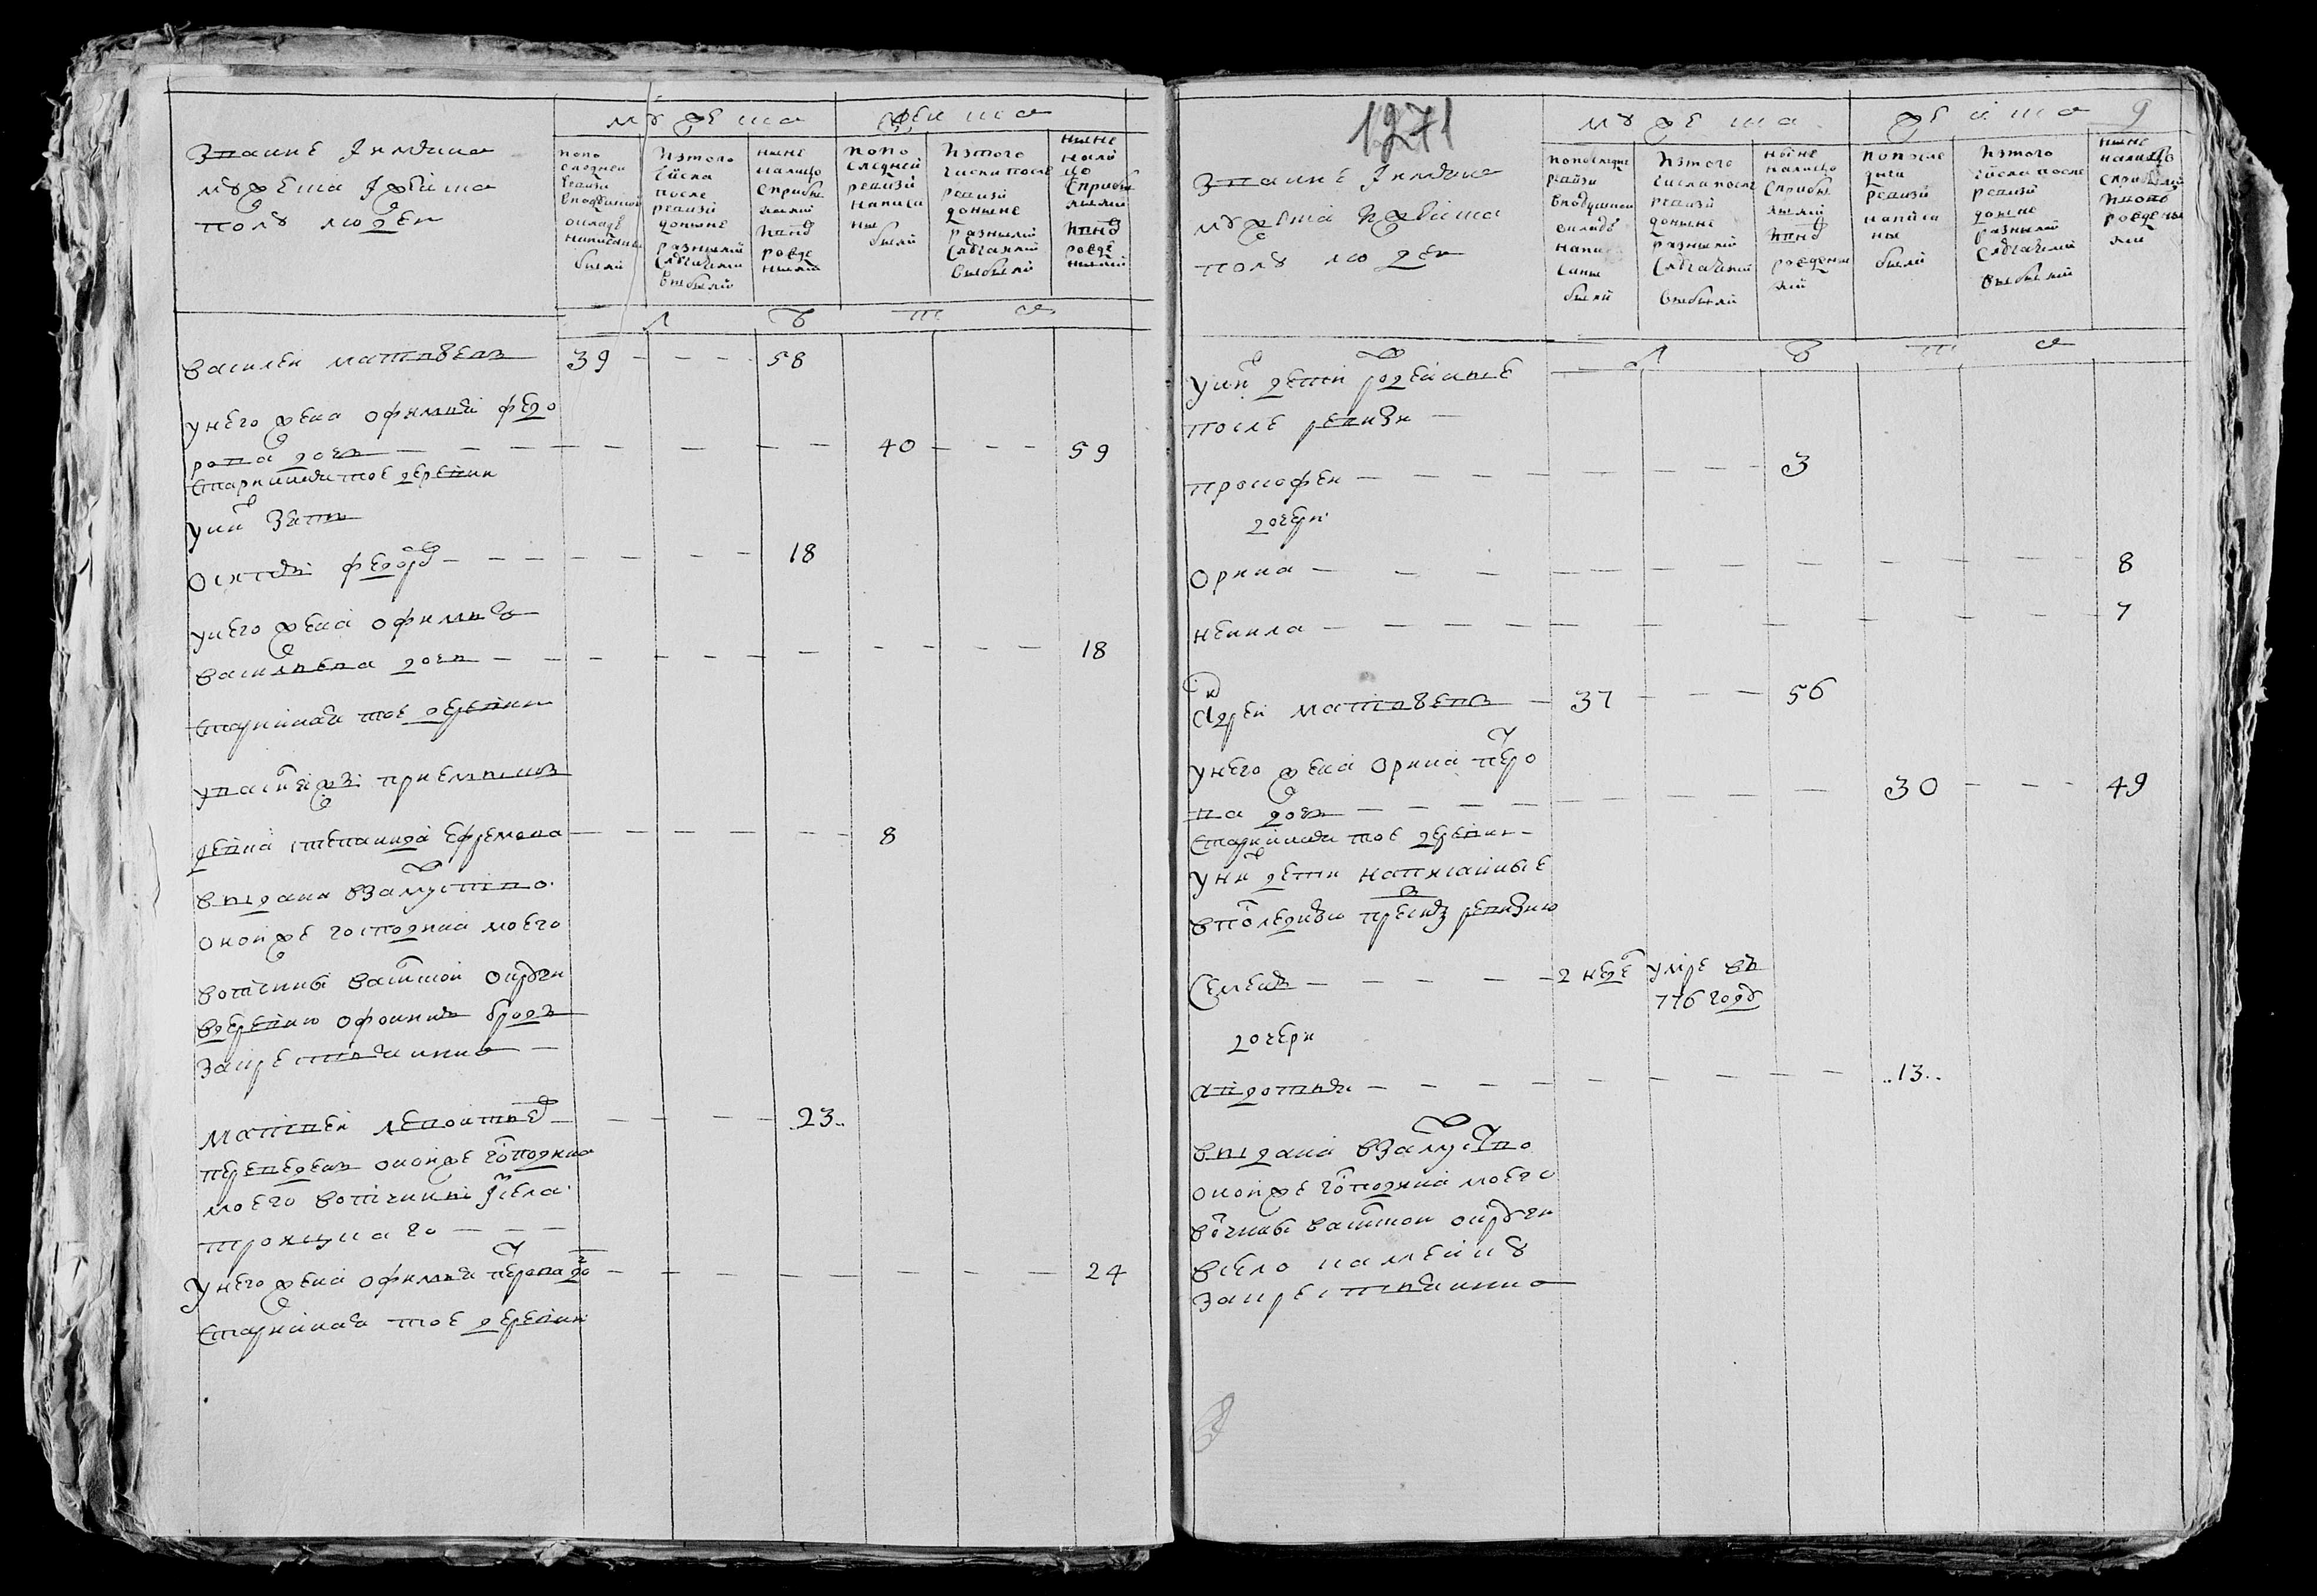 Звание и имяна
мужеска и женска
полу людей
мужеска
женска
попо
следней
ревизи
вподушном
окладе
написаны
были
Изтого
числа
после
ревизи
доныне
разными
случаями
выбыли
ныне
налицо
сприбы
лыми
и внов
рожде
ными
попо
следней
ревизи
написа
ны
были
Изтого
числа после
ревизи
доныне
разными
случаями
выбыли
ныне
нали
цо
сприбы
лыми
и внов
рожде
ными
л ѣ т а
Василей матвеевъ 39 - - - 58
унего жена офимия федо
рова дочь - - - 40 - - - 59
старинная тое деревни
уних зять
Осипъ федоров - - - 18
унего жена офимья
васильева дочь - - - 18
старинная тое деревни
девка степанида ефремова - - - 8
выдана взамуство
оногоже господина моего
вотчины вятской округи
вдеревню
закрестьянина
Матвей леонтьев - - - 23..
переведенъ оногоже господина
моего вотчины изсела
троицкаго - - -
Унего жена офимья петрова до - - - 24
старинная тое деревни
1271
9
Звание и имяна
мужеска и женска
полу людей
мужеска
женска
попоследне
ревизи
вподушном
окладе
напи
саны
были
Изтого
числа после
ревизи
доныне
разными
случаями
выбыли
ныне
налицо
сприбы
лыми
и внов
рожденны
ми
попосле
дней
ревизи
написа
ны
были
Изтого
числа после
ревизи
доныне
разными
случаями
выбыли
ныне
налицо
сприбылыми
и вновь
рожденны
ми
л ѣ т а
уних детей рожденые
после ревизи -
прокофей - - - 3
дочери
Орина - - - 8
ненила - - - 7
Андрей матвеевъ - 37 - - - 56
унего жена орина петро
ва дочь - - - 30 - - - 49
старинная тое деревни -
уних дети написанные
впоследнюю пред сим ревизию
Семенъ - - - 2 неде умре въ
776 году
дочери
авдотья - - - ..13..
выдана взамуство
оногоже господина моего
вотчины вятской округи
всело каменку
закрестьянина